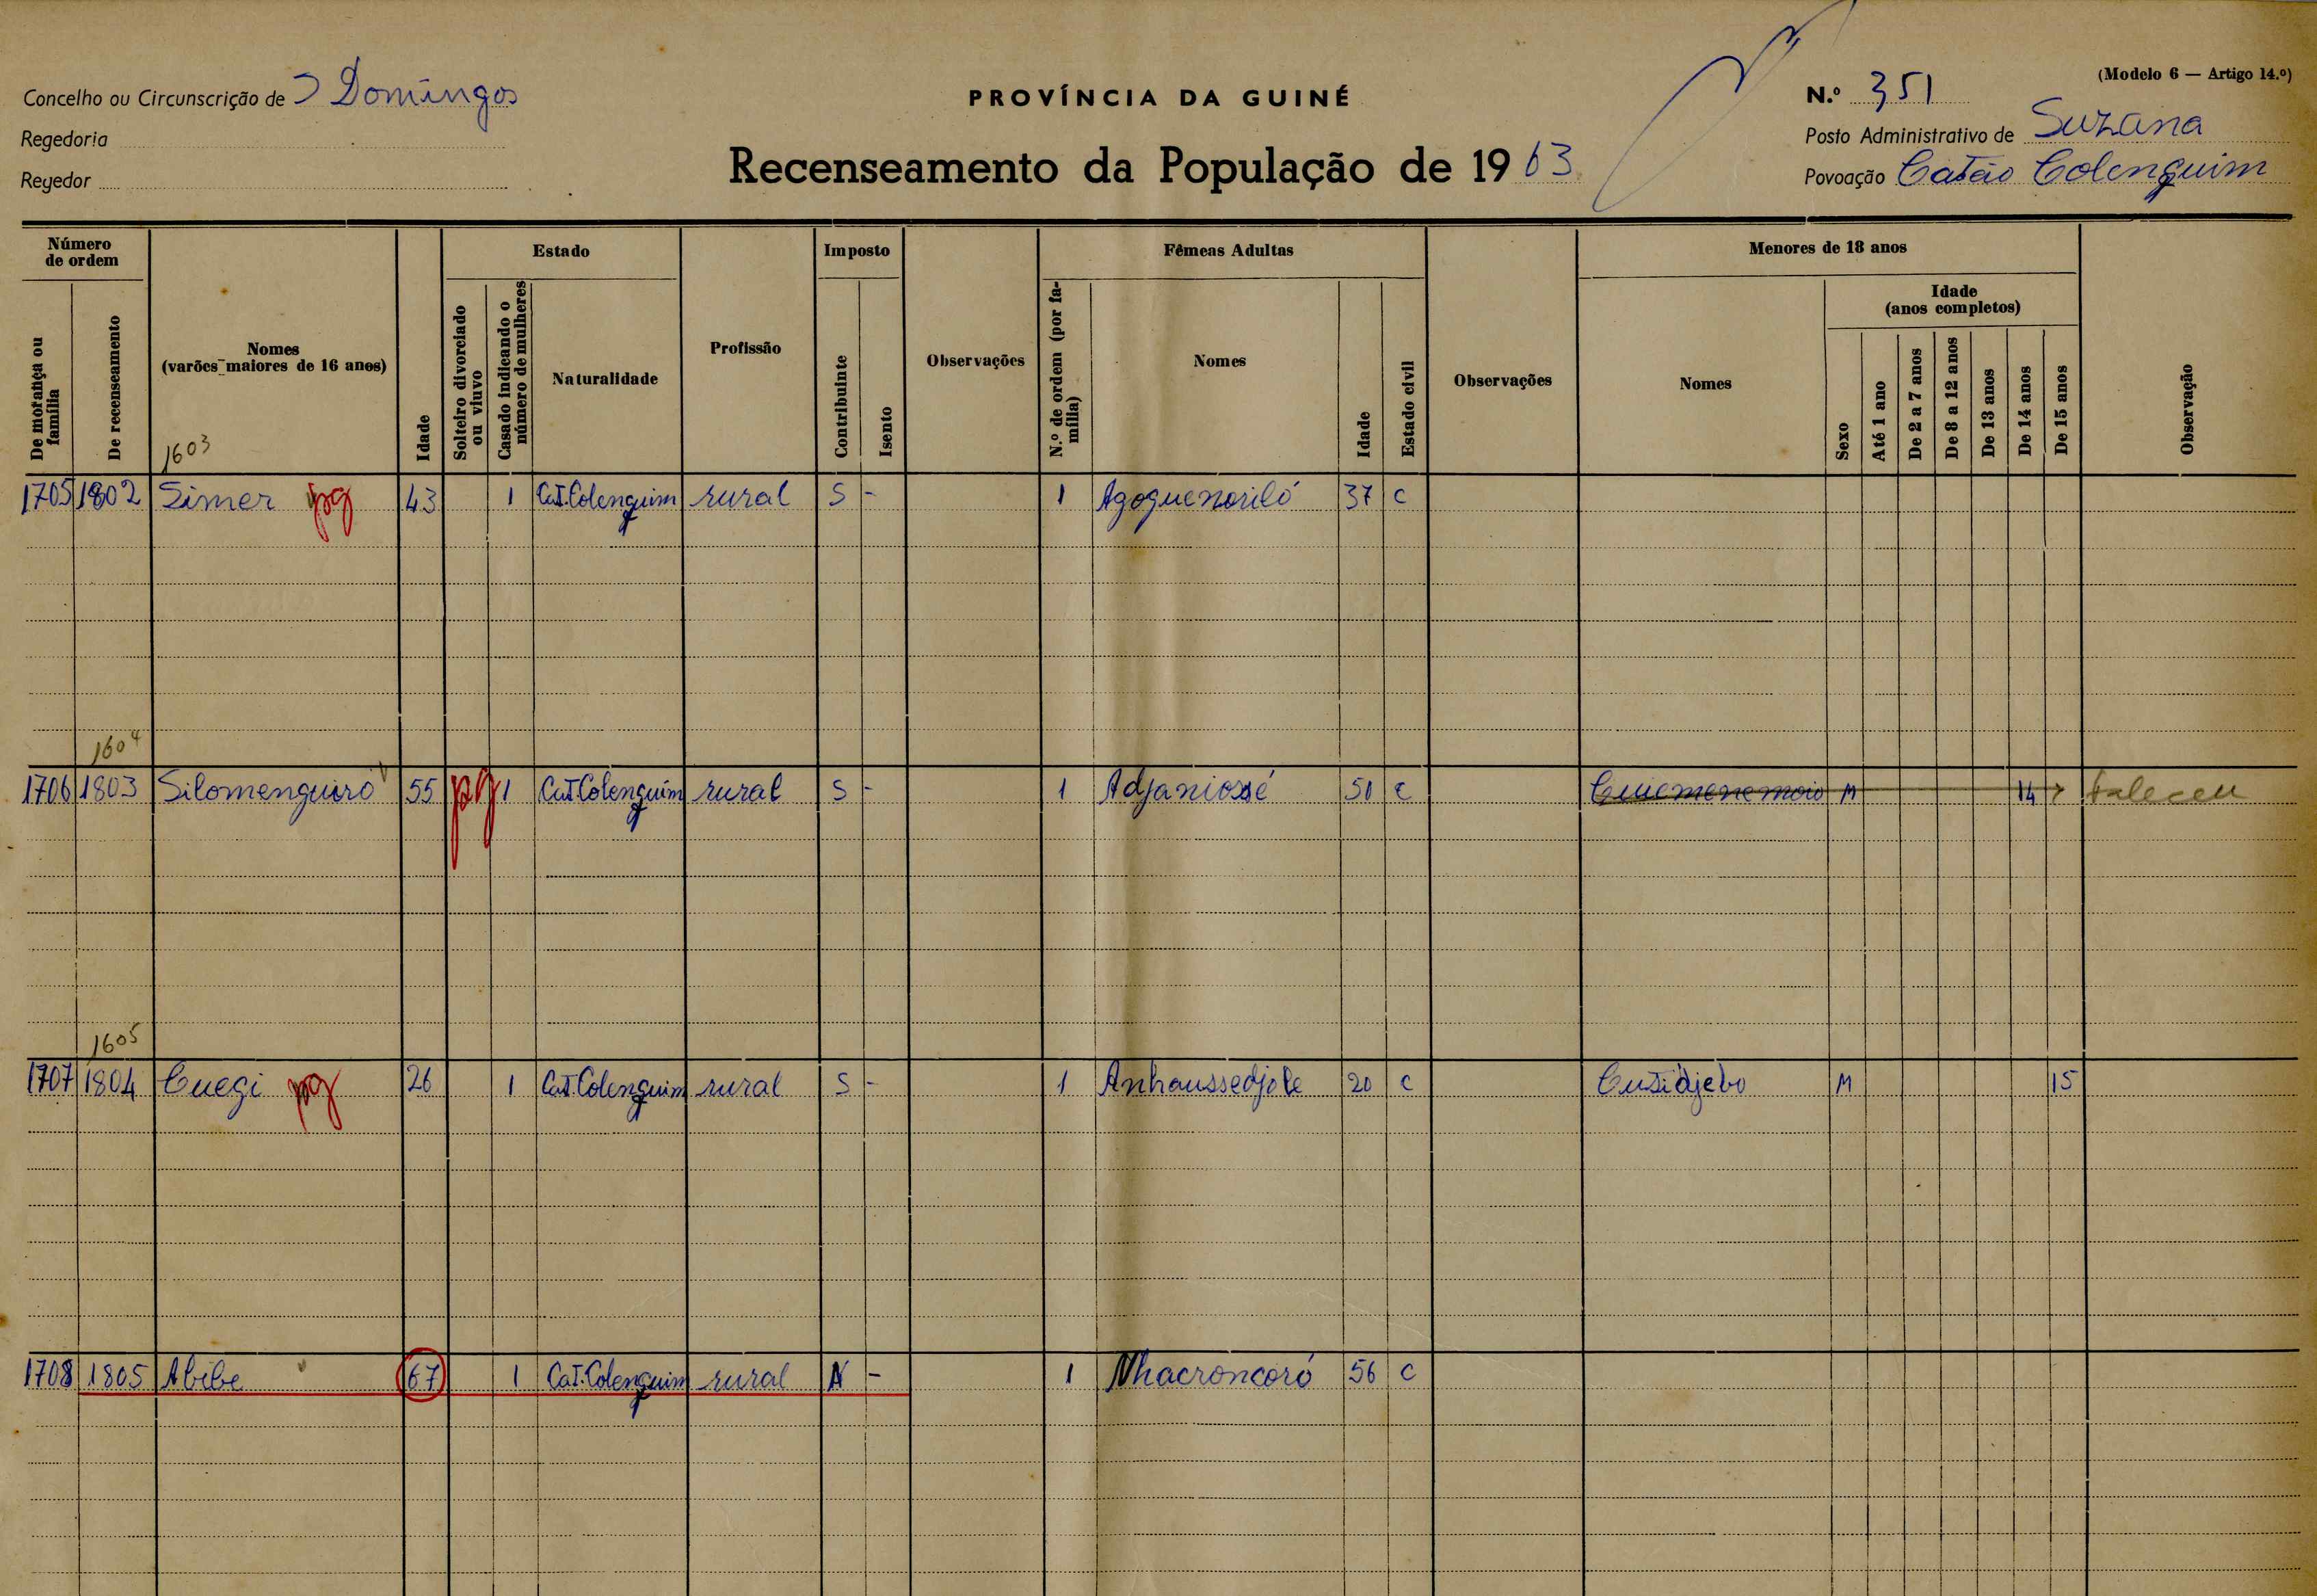 (Modelo 6 — Artigo 14.º)
Concelho ou Circunscrição de S Domingos
PROVÍNCIA DA GUINÉ
N.º 351
Regedoria
Posto Administrativo de Suzana
Recenseamento da População de 1963
Regedor
Povoação Catão Colenguim
Número de ordem
Estado
Imposto
Fêmeas Adultas
Menores de 18 anos
De morança ou família
De recenseamento
Nomes
(varões maiores de 16 anos)
Idade
Solteiro divorciado ou viuvo
Casado indicando o número de mulheres
Naturalidade
Profissão
Contribuinte
Isento
Observações
N.º de ordem (por família)
Nomes
Idade
Estado civil
Observações
Nomes
Idade
(anos completos)
Sexo
Até 1 ano
De 2 a 7 anos
De 8 a 12 anos
De 13 anos
De 14 anos
De 15 anos
Observação
1603
1705 1802 Simer pg 43 1 Cat.Colenguim rural S - 1 Agoquenoriló 37 C
1604
1706 1803 Silomenguiró 55 pg 1 Cat.Colenguim rural S - 1 Adjaniossé 50 C M 14 faleceu
1605
1707 1804 Cuegi pg 26 1 Cat.Colenguim rural S - 1 Anhaussedjole 20 C Cusidjebo M 15
1708 1805 Abibe 67 1 Cat.Colenguim rural N - 1 Nhacroncoró 56 C